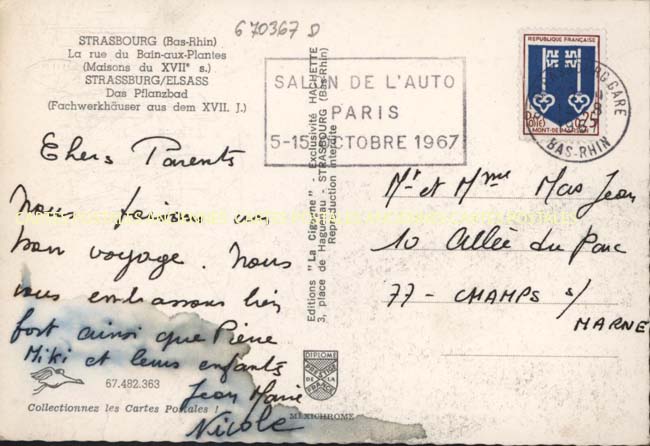 6 70367 D
STRASBOURG (Bas-Rhin)
La rue du Bain-aux-Plantes
(Maisons du XVIIe s.)
STRASSBURG/ELSASS
Das Pflanzbad
(Fachwerkhäuser aus dem XVII. J.)
SALON DE L'AUTO
PARIS
5-15 OCTOBRE 1967
REPUBLIQUE FRANÇAISE
MONT-DE-MARSAN
GARE
BAS-RHIN
Chers Parents
Nous faisons un
bon voyage. Nous
vous embrassons bien
fort ainsi que Pierre
Miki et leurs enfants
Jean Marie
Nicole
67.482.363
Collectionnez les Cartes Postales !
Editions "La Cigogne" - Exclusivité HACHETTE
3, place de Haguenau - STRASBOURG (Bas-Rhin)
Reproduction interdite
DIPLOME
PRESTIGE
DE LA
FRANCE
MEXICHROME
Mr et Mme Mas Jean
10 Allée du Parc
77 - CHAMPS s/
MARNE